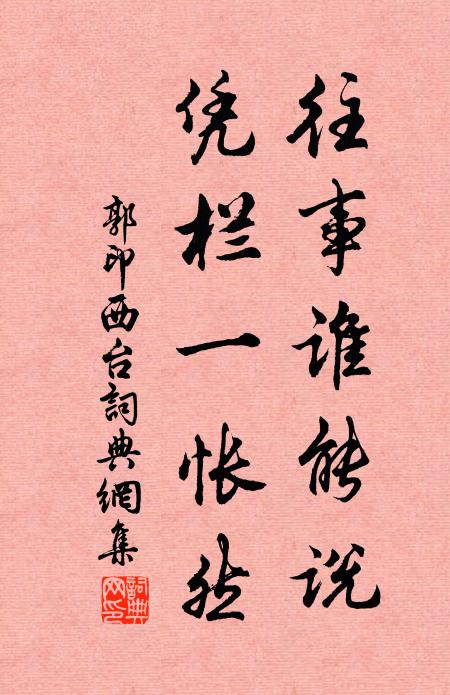 往事谁能说
凭栏一怅然
郭印西台詞典網集
詞典网印